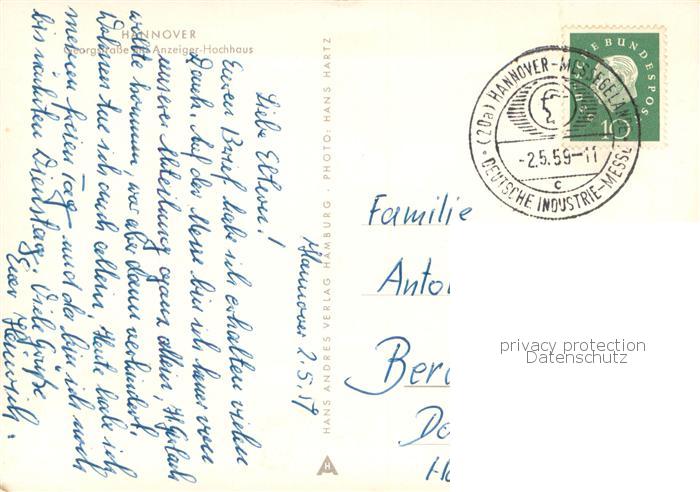 HANNOVER
Georgstraße mit Anzeiger-Hochhaus
HANS ANDRES VERLAG HAMBURG · PHOTO: HANS HARTZ
H
Hannover 2.5.59
Liebe Eltern!
Euren Brief habe ich erhalten vielen
Dank. Auf der Messe bin ich von
unserer Abteilung ganz allein,
wollte kommen, war aber dann verhindert.
ich auch selten. Heute habe ich
meinen freien Tag und da bin ich noch
bis nächsten Dienstag. Viele Grüße
Euer Heinrich.
DEUTSCHE BUNDESPOST
10
(20a) HANNOVER-MESSEGELÄNDE
-2.5.59-11
c
DEUTSCHE INDUSTRIE-MESSE
Familie
Anto
Ber
Do
privacy protection
Datenschutz